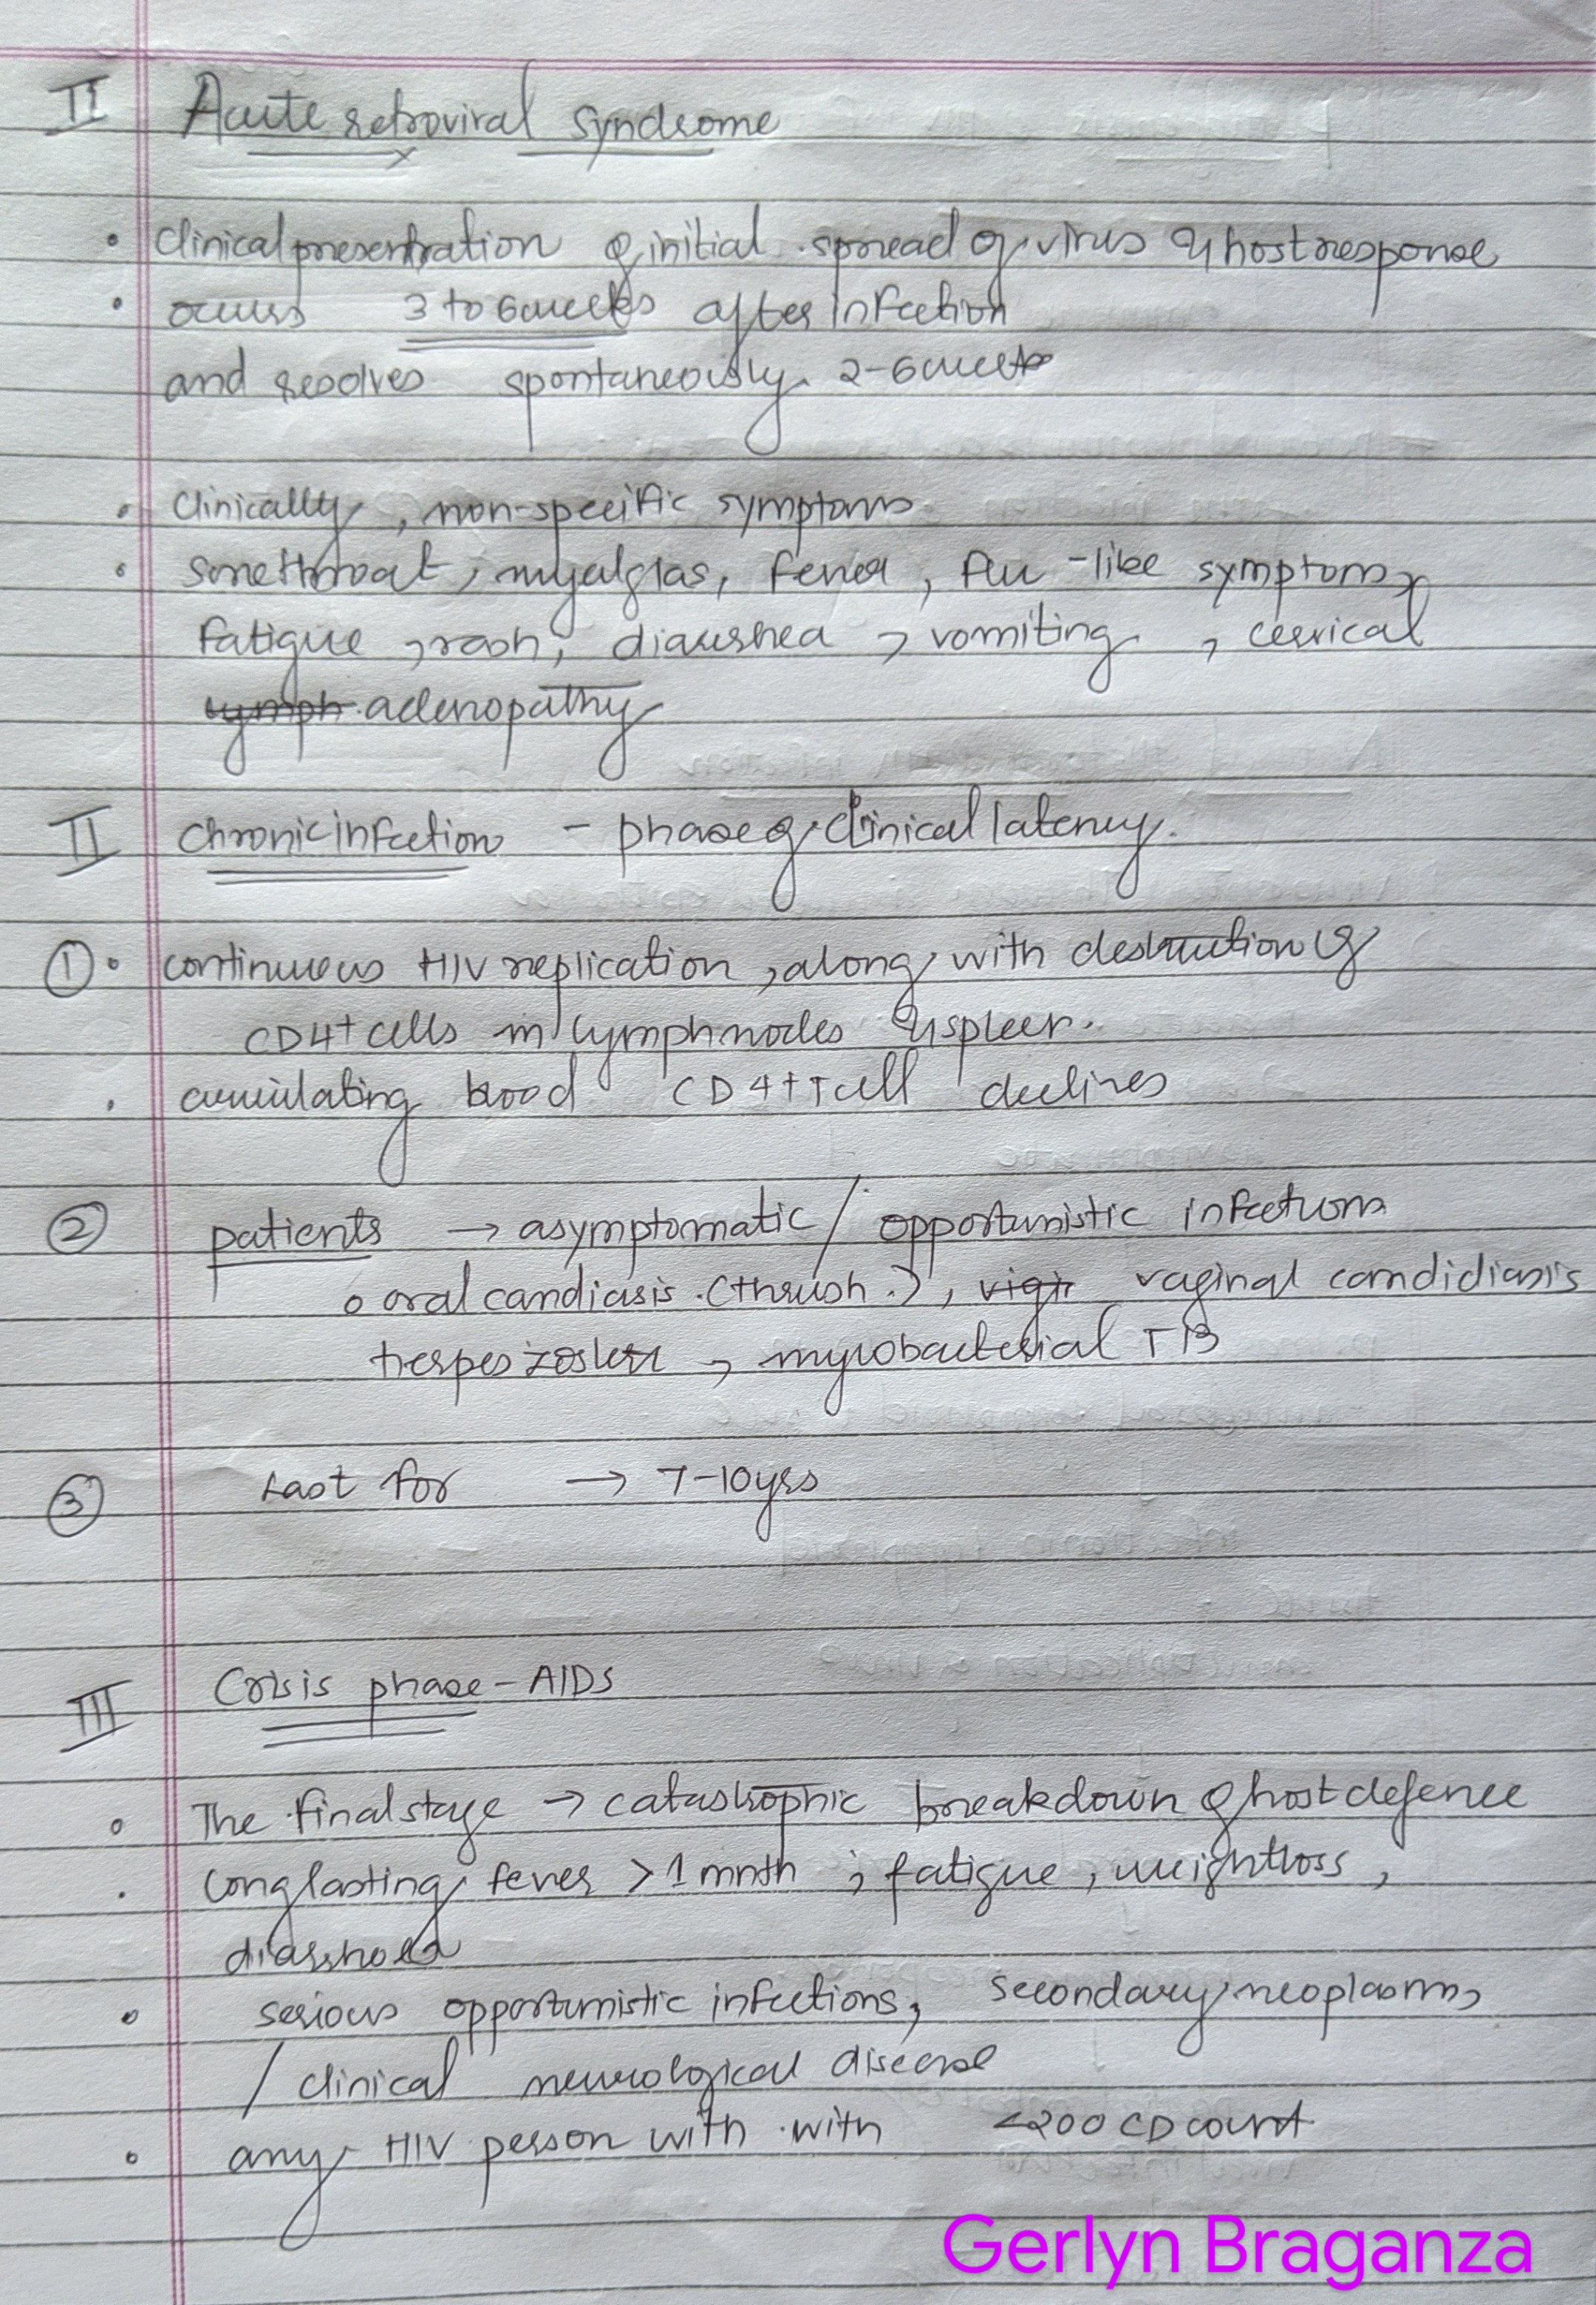 II Acute retroviral syndrome
• Clinical presentration of initial spread of virus & host response
• occurs 3 to 6 weeks after infection
and resolves spontaneously 2-6 weeks
• Clinically, non-specific symptoms
• sorethroat, myalgias, fever, flu-like symptoms,
fatigue, rash, diarrhea, vomiting, cervical
lymph adenopathy
II Chronic infection - phase of clinical latency.
① • continuous HIV replication, along with destruction of
CD4+ cells in lymph nodes & spleen.
• blood CD4+T cell declines
② patients → asymptomatic / opportunistic infections
o oral candiasis (thrush), vaginal candidiasis
Herpes zoster, mycobacterial TB
③ Last for → 7-10yrs
III Crisis phase - AIDS
• The final stage → catastrophic breakdown of host defence
• Long lasting fever > 1 mnth ; fatigue, weight loss,
diarrhoea
• serious opportunistic infections, secondary neoplasms,
/ clinical neurological disease
• any HIV person with with <200 CD count
Gerlyn Braganza